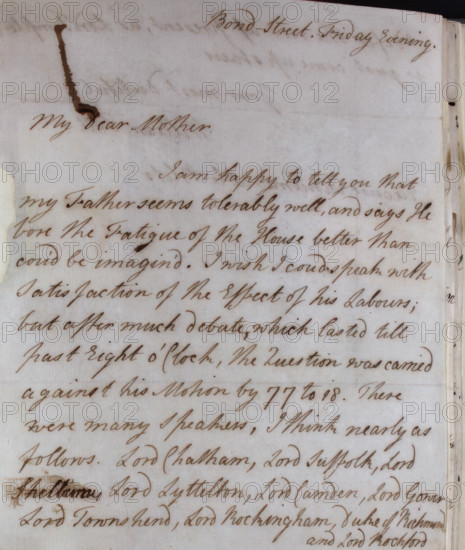 Bond Street. Friday Evening.
My dear Mother
I am happy to tell you that
my Father seems tolerably well, and says He
bore the Fatigue of the House better than
coud be imagind. I wish I coud speak with
Satisfaction of the Effect of his Labours;
but after much debate, which lasted till
past Eight o'Clock, the Question was carried
against his Motion by 77 to 18. There
were many speakers, I think nearly as
follows. Lord Chatham, Lord Suffolk, Lord
Shelburne, Lord Lyttelton, Lord Camden, Lord Gower
Lord Townshend, Lord Rockingham, Duke of Richmond
and Lord Rochford
PHOTO 12